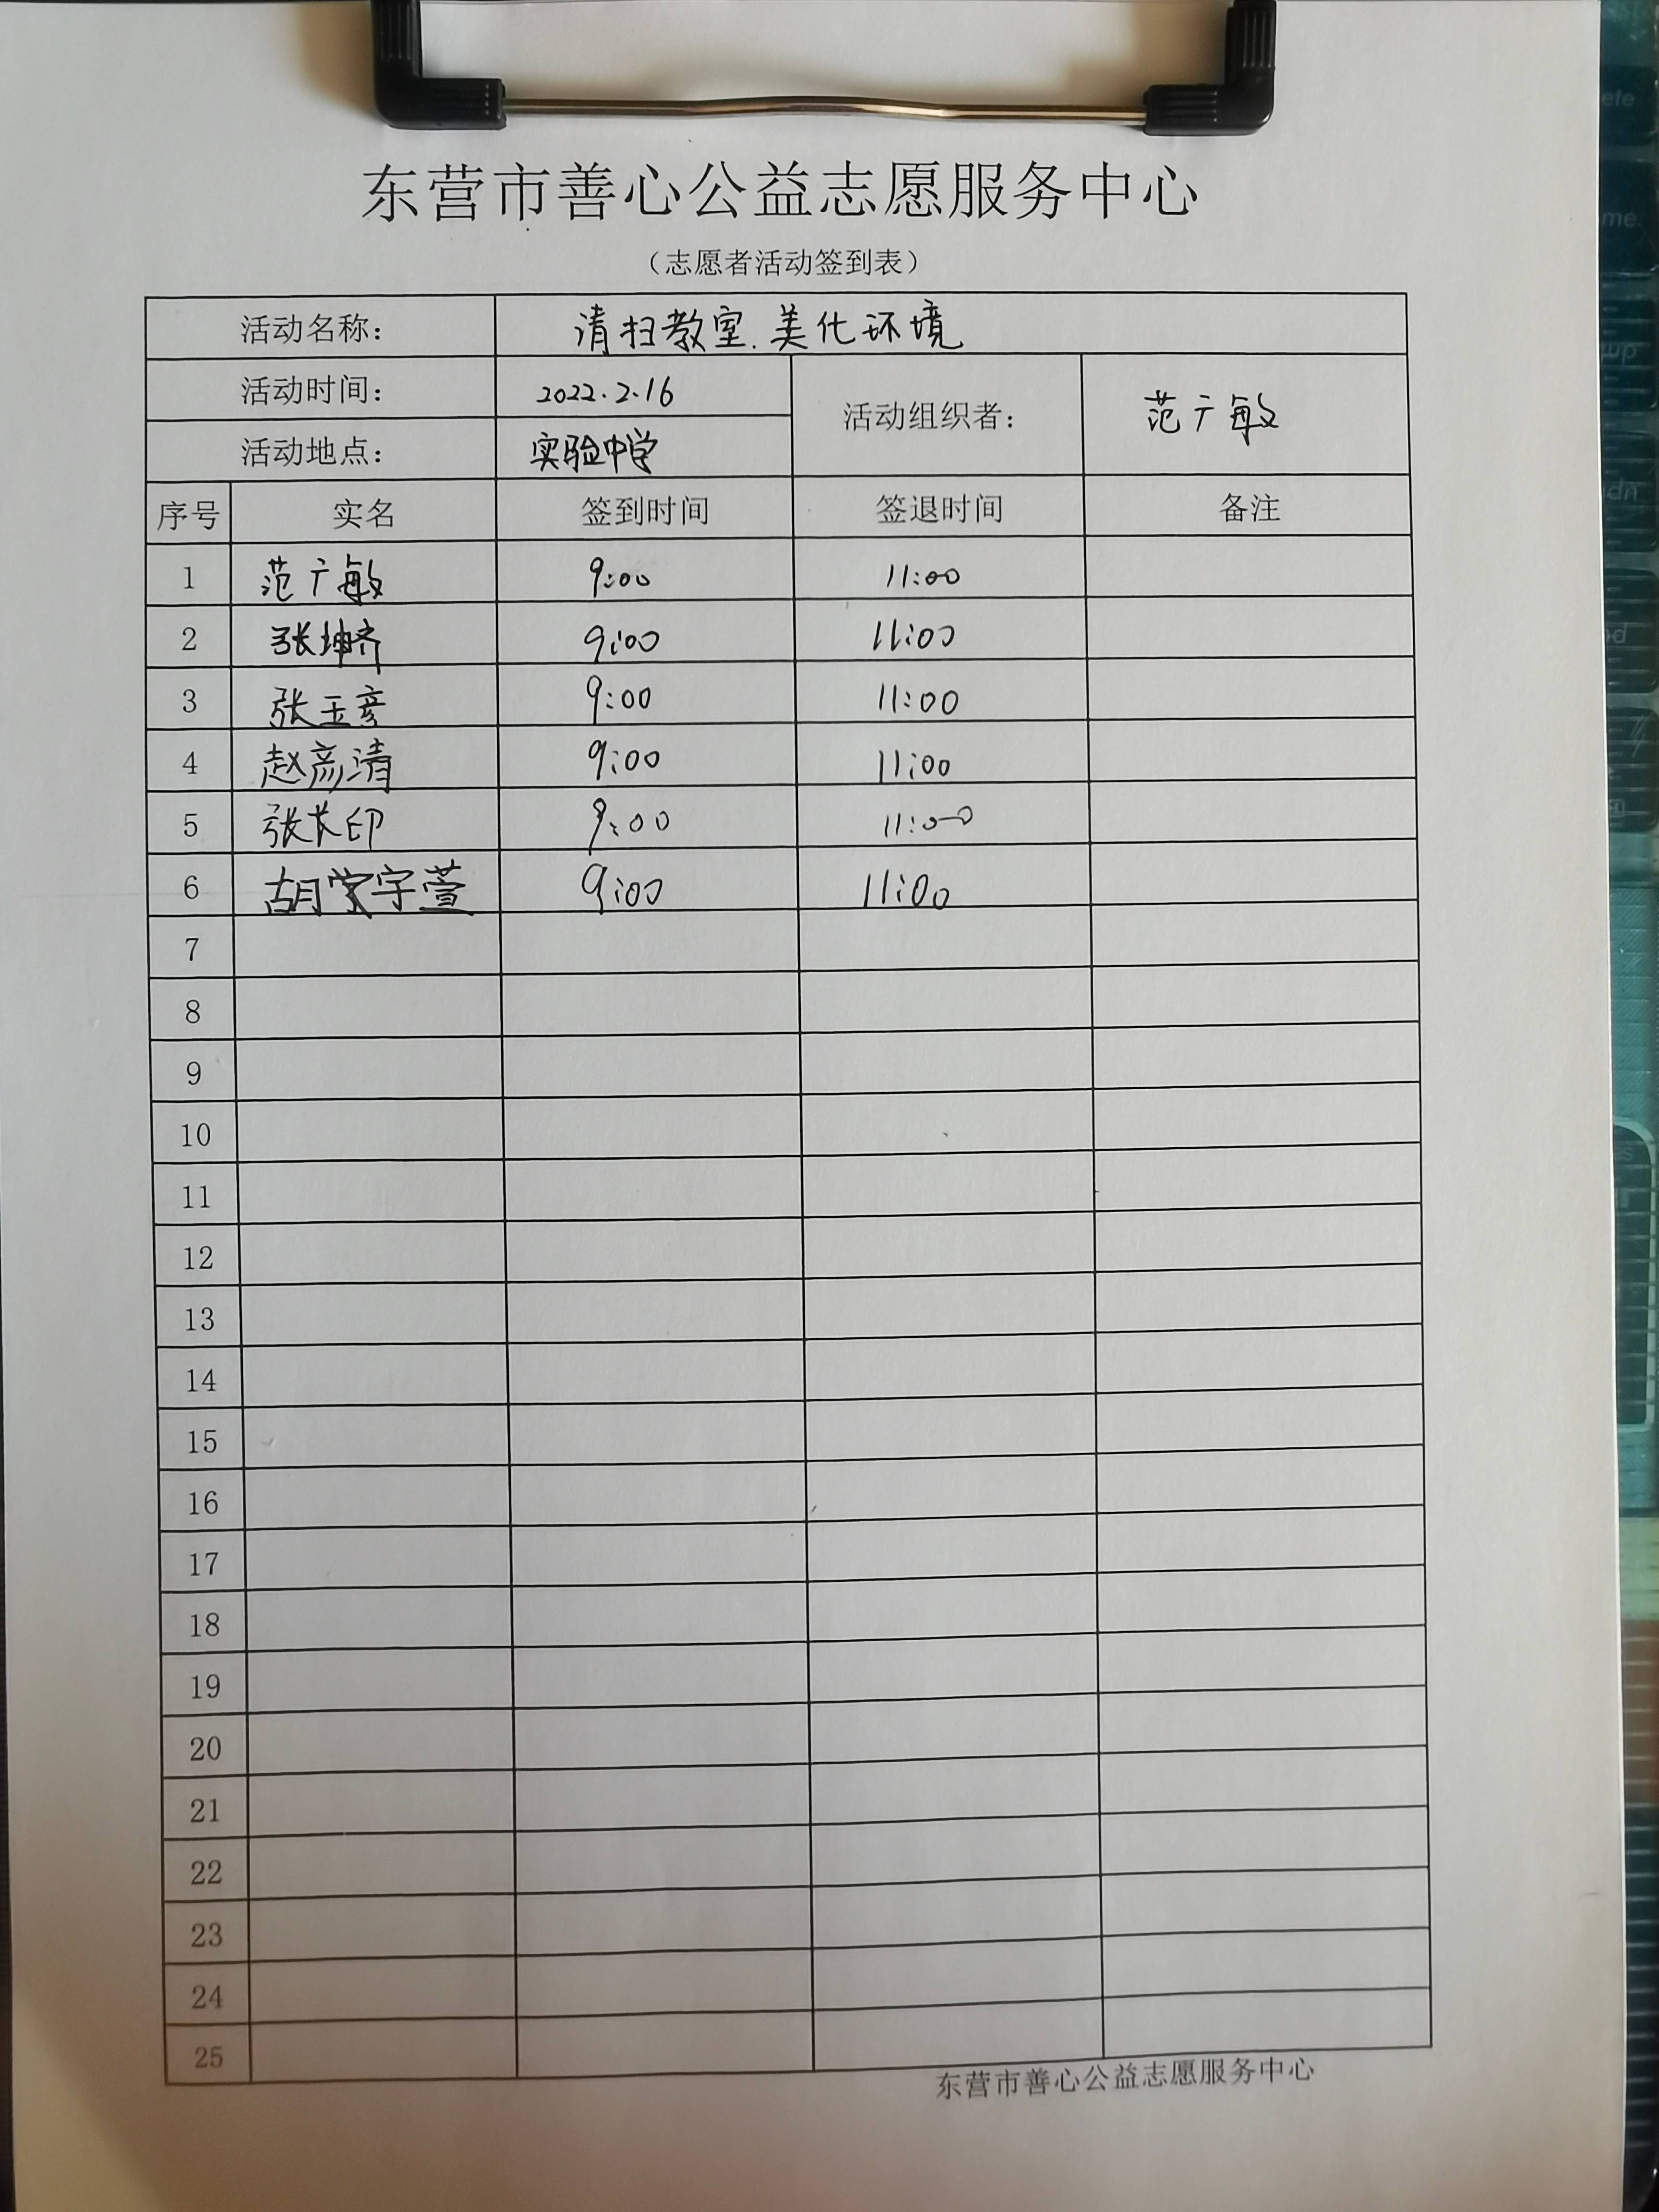 东营市善心公益志愿服务中心
（志愿者活动签到表）
活动名称： 清扫教室.美化环境
活动时间： 2022.2.16 活动组织者： 范广敏
活动地点： 实验中学
序号 实名 签到时间 签退时间 备注
1 范广敏 9:00 11:00
2 张坤齐 9:00 11:00
3 张玉彦 9:00 11:00
4 赵彦清 9:00 11:00
5 张长印 9:00 11:00
6 胡宇萱 9:00 11:00
7
8
9
10
11
12
13
14
15
16
17
18
19
20
21
22
23
24
25
东营市善心公益志愿服务中心